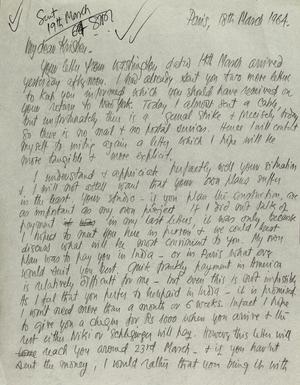 Sent
19th March
64
Paris, 18th March 1964.
My dear
Your letter from Washington dated 14th March arrived
yesterday afternoon. I had already sent you two more letters
to keep you informed which you should have received on
your return to New York. Today I almost sent a cable,
but unfortunately there is a general strike + precisely today
so there is no mail + no postal service. Hence I will content
myself to writing again a letter which I hope will be
more tangible + more explicit.
I understand + appreciate perfectly well your situation
+ I will not at all want that your own plans suffer
in the least. Your studio - if you plan its construction, are
as important as any own project. If I did not talk of
payment in my last letters, it was only because
I hoped to meet you here in person + we could best
discuss what will be most convenient to you. My own
plan was to pay you in India - or in Paris what ever
would suit you best. Quite frankly payment in America
is relatively difficult for me - but even this is not impossible
As I feel that you prefer to be paid in India - it is promised
won't need more than a month or 6 weeks. In fact I hope
to give you a cheque for Rs 1000 when you arrive + the
rest either Nikü or Schlumberger will pay. However this letter will
reach you around 23rd March - + if you haven't
sent the money, I would rather that you bring it with